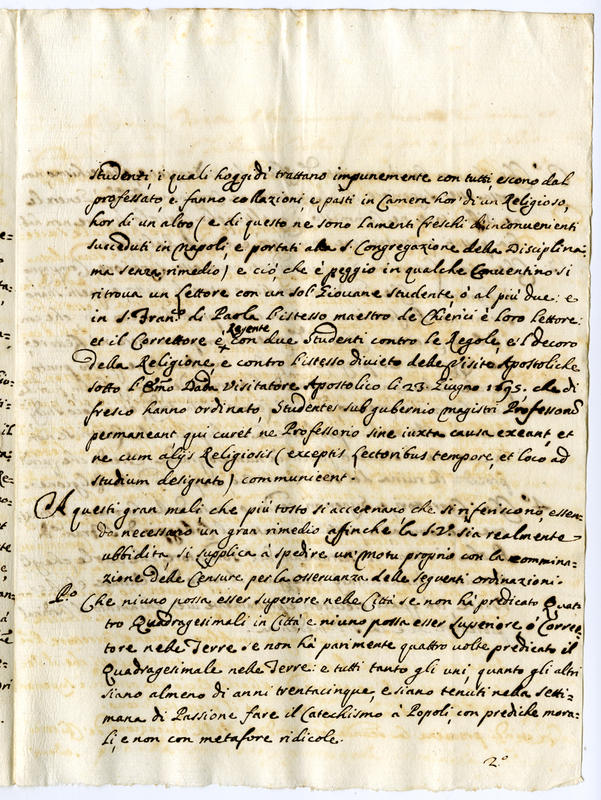 Studenti, i quali hoggidì trattano impunemente con tutti, escono dal
professato, e fanno collazioni, e pasti in Camera hor' di un Religioso,
hor di un' altro (e di questo ne sono lamenti freschi d'inconvenienti
succeduti in Napoli, e portati alla S. Congregazione della Disciplina,
ma senza rimedio) e ciò, che è peggio in qualche Conventino si
ritrova un Lettore con un sol' Giovane studente, ò al più due: e
in S. Fran.co di Paola l'istesso maestro de Chierici è loro lettore:
et il Correttore è Regente con due Studenti contro le Regole, e'l decoro
della Religione, e contro l'istesso divieto delle Visite Apostoliche
sotto l'Emo Dada Visitatore Apostolico li 23. Giugno 1695, che di
fresco hanno ordinato, Studentes sub gubernio magistri Professorum
permaneant, qui curet ne Professorio sine iuxta causa exeant, et
ne cum alijs Religiosis (exceptis Lectoribus tempore, et loco ad
studium designato) communicent.
A questi gran mali che più tosto si accennano che si riferiscono, essen-
do necessario un gran rimedio affinche la S. V. sia realmente
ubbidita, si supplica à spedire un' Motu proprio con la commina-
zione delle Censure per la osservanza delle seguenti ordinazioni.
P.o Che niuno possa esser superiore nelle Città se non hà predicato Quat-
tro Quadragesimali in Città, e niuno possa esser Superiore ò Corret-
tore nelle Terre se non hà parimente quattro volte predicato il
Quadragesimale nelle Terre: e tutti tanto gli uni, quanto gli altri
siano almeno di anni trentacinque, e siano tenuti nella setti-
mana di Passione fare il Catechismo à Popoli, con prediche mora-
li, e non con metafore ridicole.
2.o